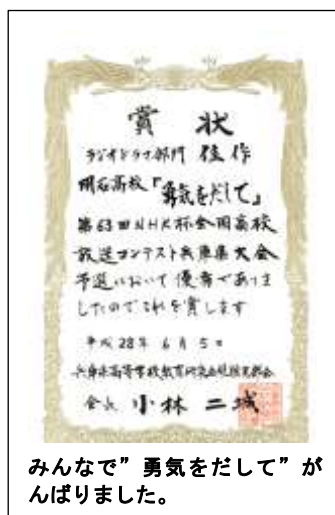 賞状
ラジオドラマ部門 佳作
明石高校『勇気をだして』
第63回NHK杯全国高校
放送コンテスト兵庫県大会
予選において優秀でありま
したのでこれを賞します
平成28年6月5日
兵庫県高等学校教育研究会視聴覚部会
会長 小林 二城
みんなで”勇気をだして”が
んばりました。